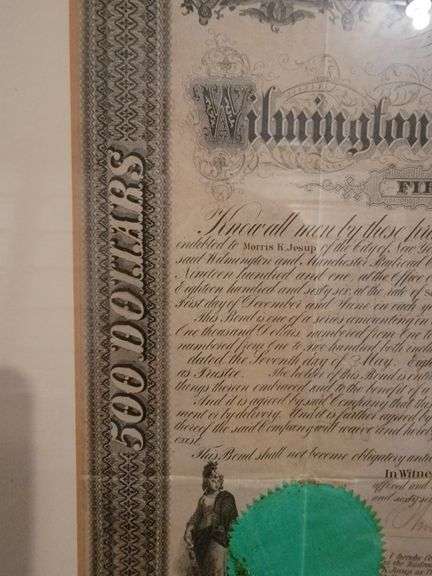 500 DOLLARS
Wilmington
FIR
Know all men by these
indebted to Morris K. Jesup of the City of New
said Wilmington and Manchester Railroad
Nineteen hundred and one, at the office
Eighteen hundred and sixty six, at the rate of
First day of December and June in each
This Bond is one of a series amounting in
One thousand Dollars numbered from One
numbered from one to two hundred both
dated the Seventh day of May,
as Trustee. The holder of this Bond is
things therein embraced and to the benefit
And it is agreed by said Company that
ment or by delivery. And it is further agreed
thereof the said Company will waive and
exist.
This Bond shall not become obligatory until
In Witness
affixed and
and sixty
I hereby
K. Jesup as